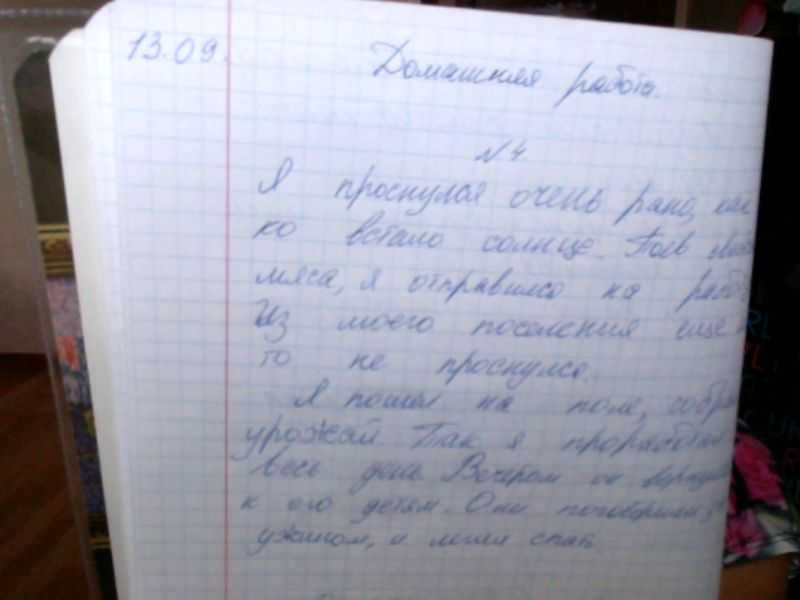 13.09.
Домашняя работа.
№4
Я проснулся очень рано, как
ко встало солнце. Поев
мяса, я отправился на рабо
Из моего поселения еще
то не проснулся.
Я пошел на поле, собра
урожай. Так я проработал
весь день. Вечером он верну
к его детям. Они поговорили
ужином, и легли спать